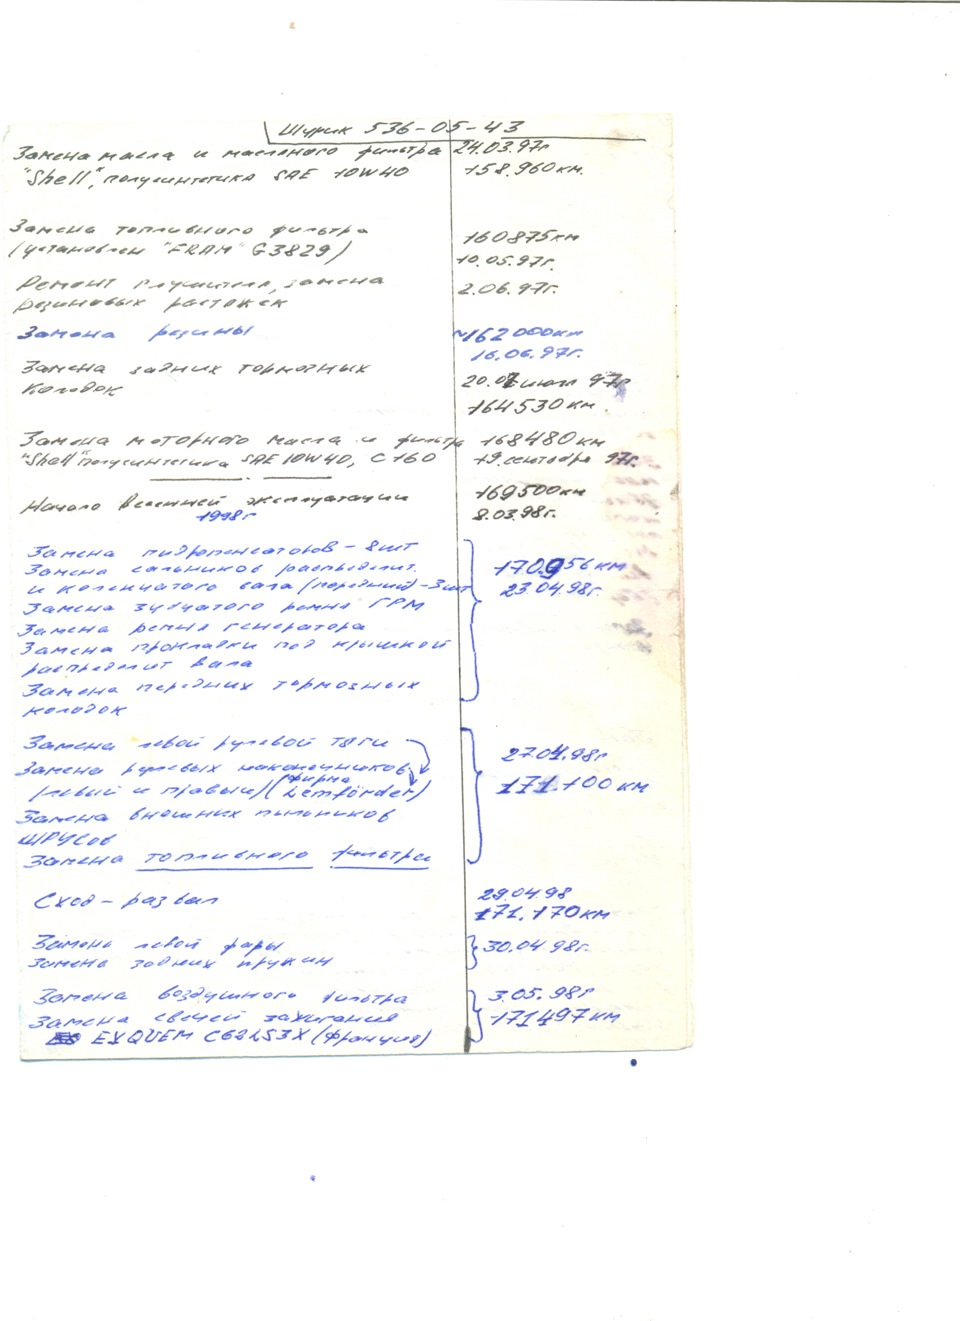 Шурик 536-05-43
Замена масла и масляного фильтра 24.03.97г
"Shell", полусинтетика SAE 10W40 158.960км.
Замена топливного фильтра
(установлен "FRAM" G3829) 160875км
10.05.97г.
Ремонт глушителя, замена 2.06.97г.
резиновых растяжек
Замена резины ~162000км
16.06.97г.
Замена задних тормозных
колодок 20.07 июля 97г
164530км.
Замена моторного масла и фильтра 168480км
"Shell" полусинтетика SAE 10W40, C160 19.сентября 97г.
Начало весенней эксплуатации 169500км
1998г 8.03.98г.
Замена гидропенсаторов - 8шт
Замена сальников распределит. 170.956км
и коленчатого вала (передний) - 3шт 23.04.98г.
Замена зубчатого ремня ГРМ
Замена ремня генератора
Замена прокладки под крышкой
распределит вала
Замена передних тормозных
колодок
Замена левой рулевой тяги 27.04.98г
Замена рулевых наконечников
(левый и правый) (фирма Lemförder) 171.100км
Замена внешних пыльников
ШРУСов
Замена топливного фильтра
Сход-развал 29.04.98
171.170км
Замена левой фары 30.04.98г.
Замена задних пружин
Замена воздушного фильтра 3.05.98г
Замена свечей зажигания 171497км
EYQUEM C62LS3X (Франция)